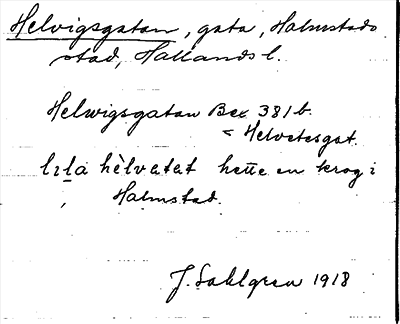 Helvigsgatan, gata, Halmstads
stad, Hallands l.
Helwigsgatan Bex 381 b.
< Helvetesgat.
lɪla hèlvatat hette en krog i
Halmstad.
J. Sahlgren 1918